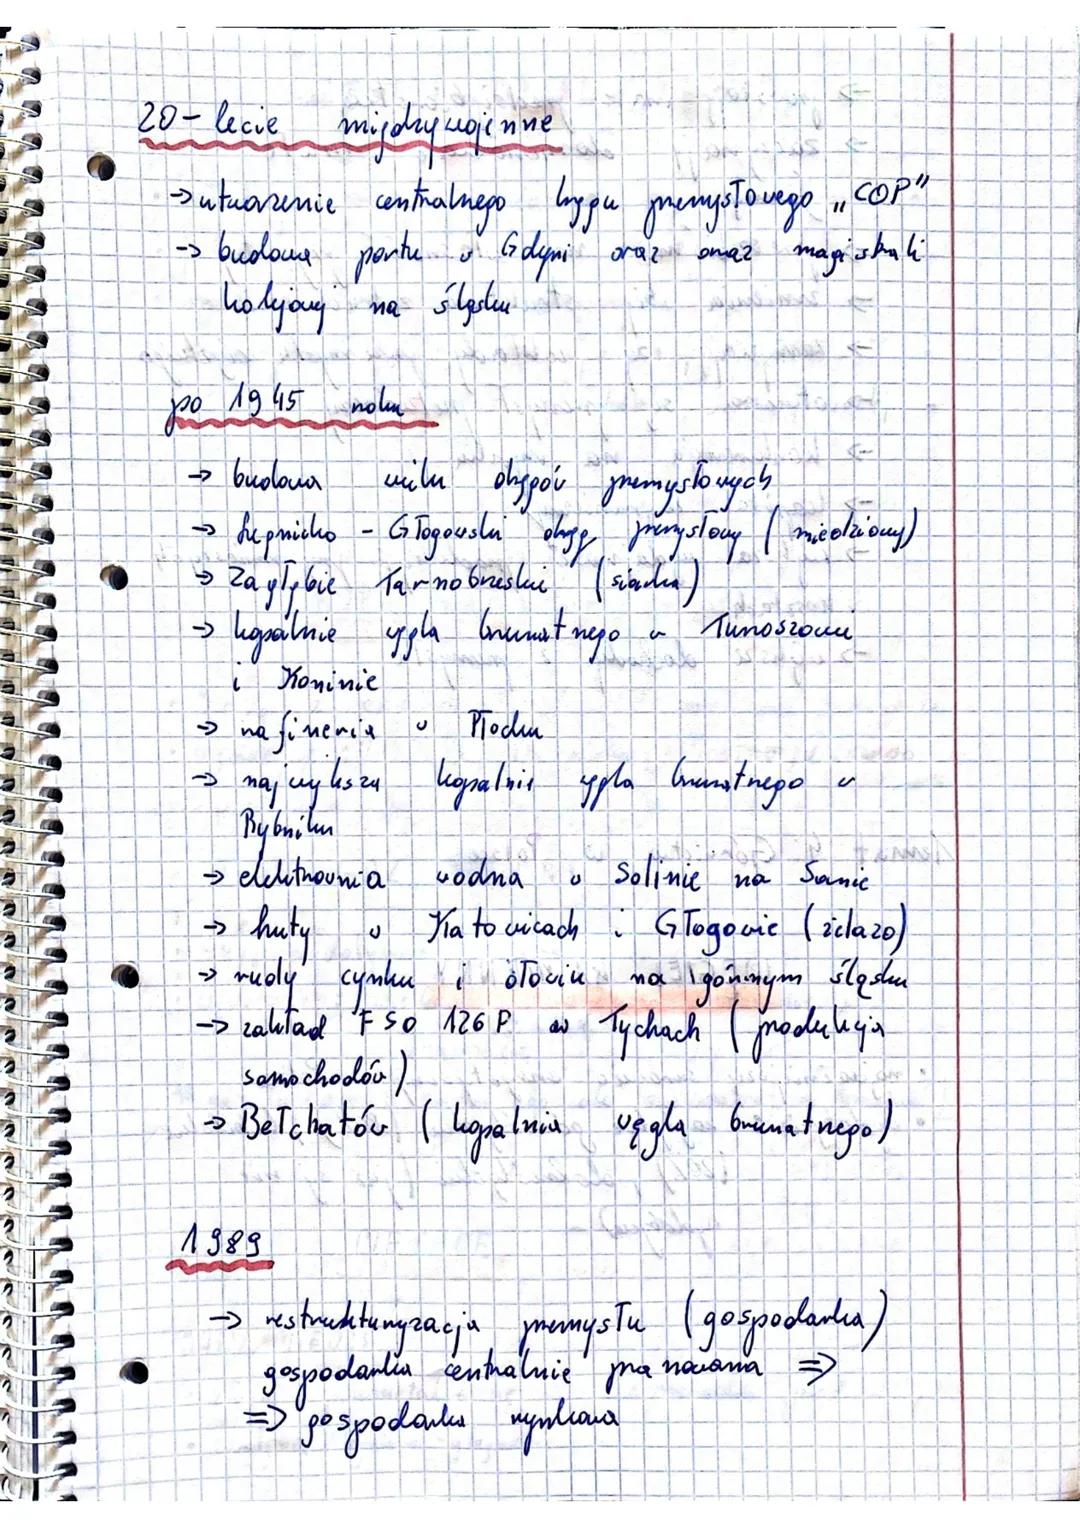 20-lecie międzywojenne
→ utworzenie centralnego okręgu przemysłowego „COP"
→ budowa portu w Gdyni oraz oraz magistrali
kolejowej na śląsku
po 1945 roku
→ budowa wielu okręgów przemysłowych
→ Legnicko - Głogowski okręg przemysłowy (miedziowy)
→ Zagłębie Tarnobrzeskie (siarka)
→ kopalnie węgla brunatnego w Turoszowie
i Koninie
→ rafineria w Płocku
→ największa kopalnia węgla brunatnego w
Rybniku
→ elektrownia wodna w Solinie na Sanie
→ huty w Katowicach i Głogowie (żelazo)
→ rudy cynku i ołowiu na górnym śląsku
→ zakład FSO 126P w Tychach (produkcja
samochodów)
→ Bełchatów (kopalnia węgla brunatnego)
1989
→ restrukturyzacja przemysłu (gospodarka)
gospodarka centralnie planowana ⇒
⇒ gospodarka rynkowa